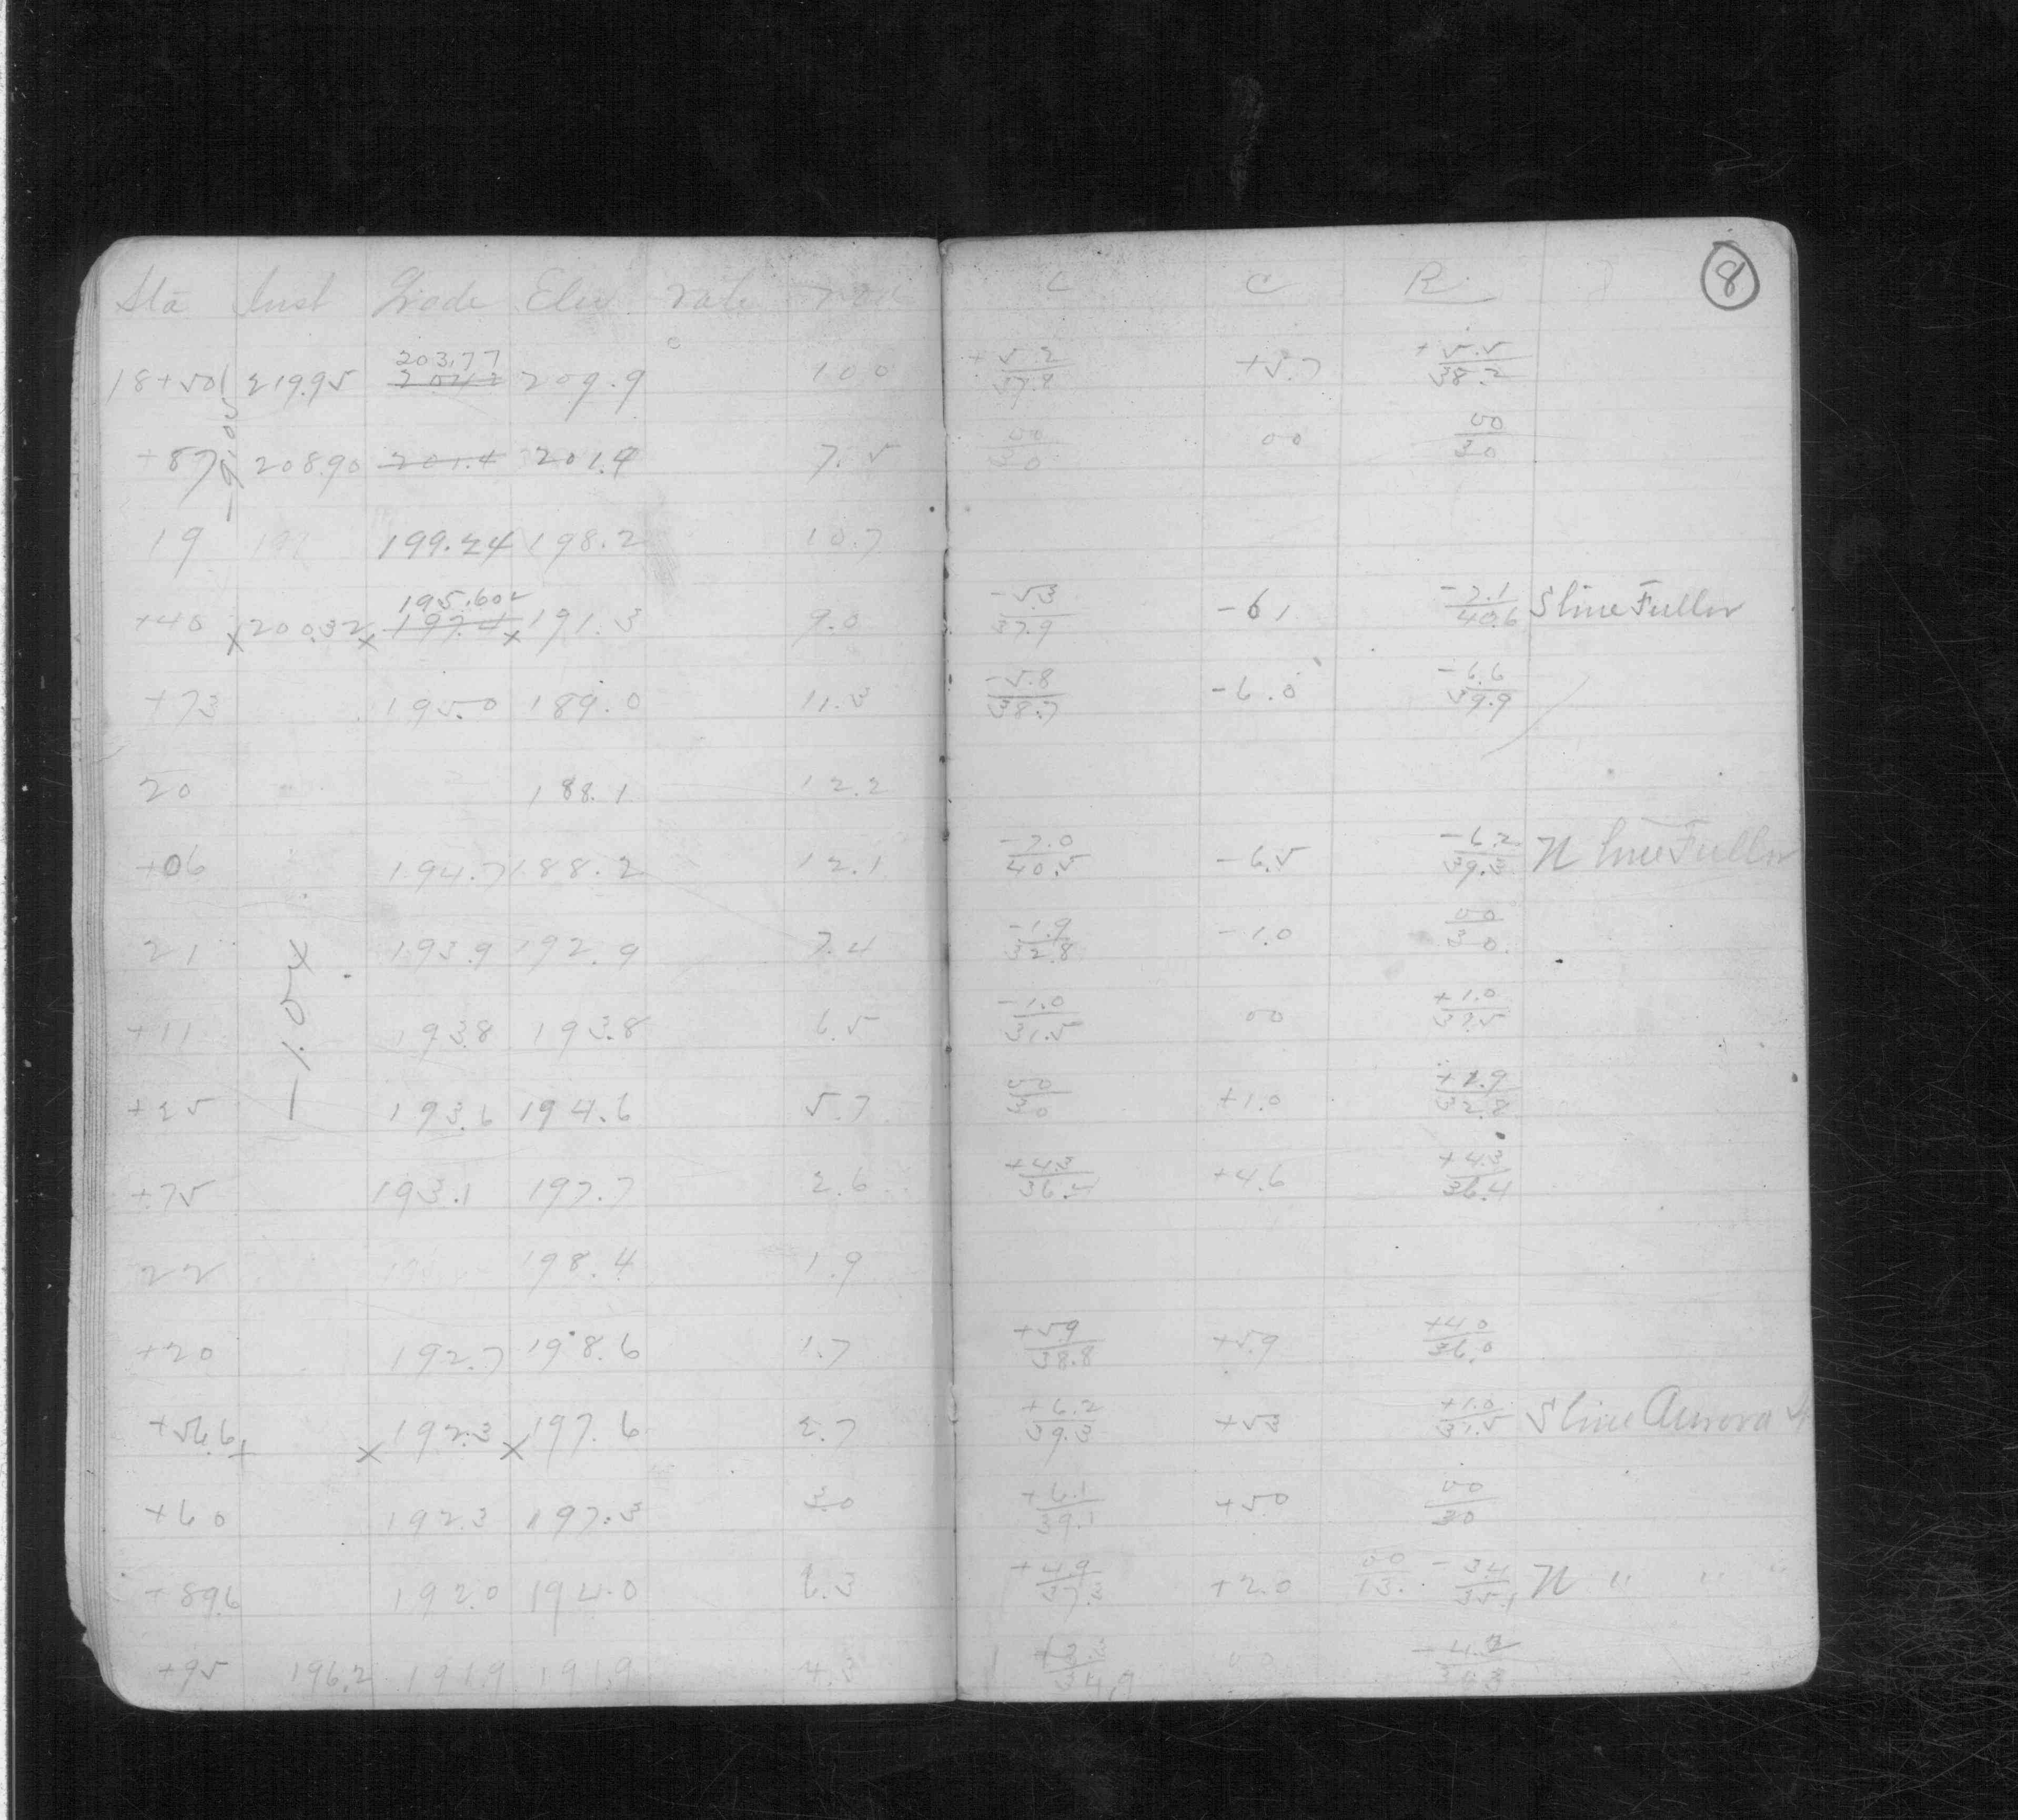 Sta Inst Grade Elev rate rod L C R 8
203.77
18+50 219.95 204.2 209.9 10.0 +5.2/37.8 +5.7 +5.5/38.2
+87 208.90 201.4 201.4 7.5 00/30 00 00/30
19 199.24 198.2 10.7
195.602
+40 200.32 197.4 191.3 9.0 -5.3/37.9 -6.1 -7.1/40.6 S line Fuller
+73 195.0 189.0 11.3 -5.8/38.7 -6.0 -6.6/39.9
20 188.1 12.2
+06 194.7 188.2 12.1 -7.0/40.5 -6.5 -6.2/39.3 N line Fuller
21 193.9 192.9 7.4 -1.9/32.8 -1.0 00/30
-1.04
+11 193.8 193.8 6.5 -1.0/31.5 00 +1.0/37.5
+25 193.6 194.6 5.7 00/30 +1.0 +1.9/32.8
+75 193.1 197.7 2.6 +4.3/36.4 +4.6 +4.3/36.4
22 198.4 1.9
+20 192.7 198.6 1.7 +5.9/38.8 +5.9 +4.0/36.0
+56.6 192.3 197.6 2.7 +6.2/39.3 +5.3 +1.0/31.5 S line Aurora
+60 192.3 197.3 3.0 +6.1/39.1 +5.0 00/30
+89.6 192.0 194.0 6.3 +4.9/37.3 +2.0 00/13. -3.4/35.1 N " " "
+95 196.2 191.9 191.9 4.3 00